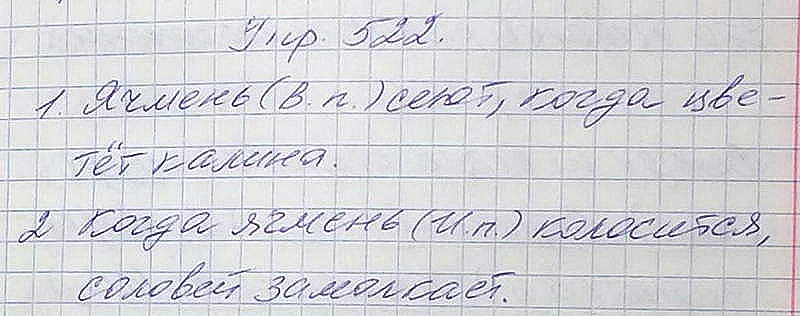 Упр. 522.
1. Ячмень (В. п.) сеют, когда цве-
тёт калина.
2 Когда ячмень (И.п.) колосится,
соловей замолкает.